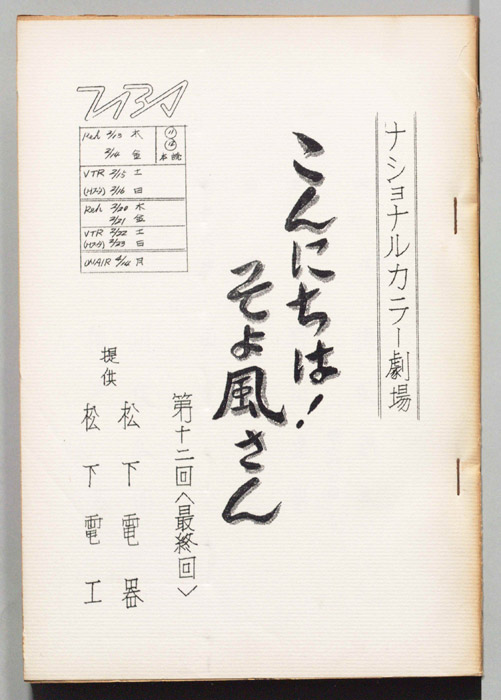 ナショナルカラー劇場
こんにちは!
そよ風さん
第十二回〈最終回〉
提供
松下電器
松下電工
TBS
Reh 3/13 木
3/14 金
⑪
⑫
本読
VTR 3/15 土
3/16 日
Reh 3/20 木
3/21 金
VTR 3/22 土
3/23 日
ONAIR 4/14 月